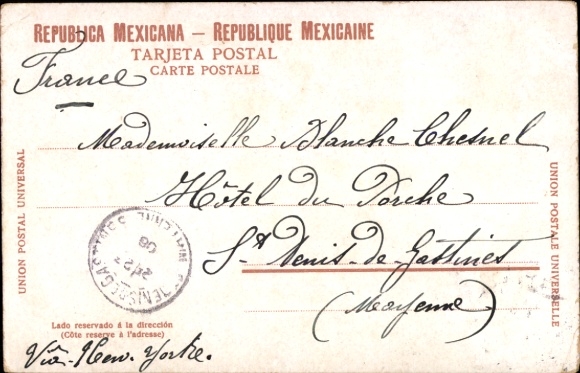 REPUBLICA MEXICANA — REPUBLIQUE MEXICAINE
TARJETA POSTAL
CARTE POSTALE
France
Mademoiselle Blanche Chesnel
Hôtel du Porche
St Denis-de-Gastines
(Mayenne)
UNION POSTAL UNIVERSAL
UNION POSTALE UNIVERSELLE
Lado reservado á la dirección
(Côte reserve à l'adresse)
Via-New-Yorke.